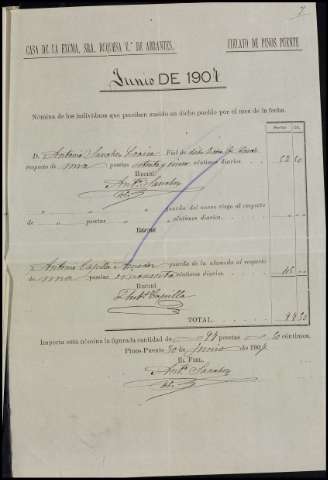 7
CASA DE LA EXCMA. SRA. DUQUESA V.ª DE ABRANTES. FIELATO DE PINOS PUENTE
Junio DE 1904
Nómina de los individuos que perciben sueldo en dicho pueblo por el mes de la fecha.
D. Antonio Sanchez Fiel de
respecto de una pesetas y céntimos diarios. 52 50
Recibí
Ant.º Sanchez
" " " guarda del nuevo riego al respecto
de " pesetas " céntimos diarios.
Recibí
Antonio Capilla guarda de la alameda al respecto
de una pesetas cincuenta céntimos diarios. 45
Recibí
Ant.º Capilla
TOTAL.
Importa esta nómina la figurada cantidad de pesetas 50 céntimos.
Pinos-Puente 30 de Junio de 1904
EL FIEL,
Ant.º Sanchez